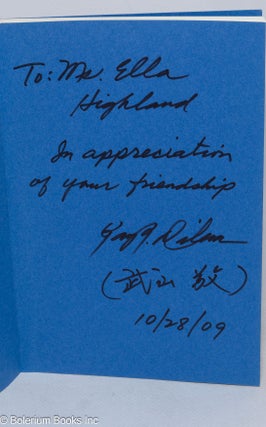 To: Ms. Ella
Highland
In appreciation
of your friendship
10/28/09
© Bolerium Books Inc